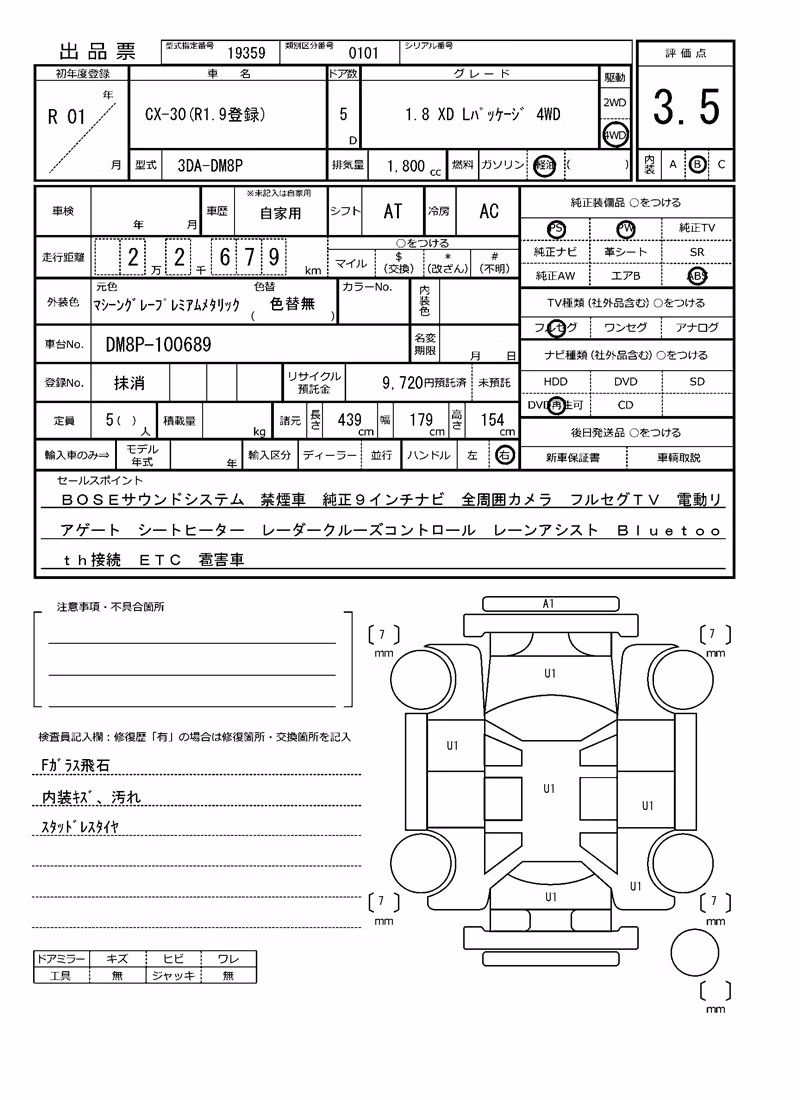 出品票 型式指定番号 19359 類別区分番号 0101 シリアル番号
評価点
3.5
内装 A B C
初年度登録 車名 ドア数 グレード 駆動
R 01 年 月 CX-30(R1.9登録) 5 D 1.8 XD Lﾊﾟｯｹｰｼﾞ 4WD 2WD 4WD
型式 3DA-DM8P 排気量 1,800 cc 燃料 ガソリン 軽油 ( )
車検 年 月 車歴 ※未記入は自家用 自家用 シフト AT 冷房 AC
走行距離 2 万 2 千 6 7 9 km ○をつける
マイル $(交換) *(改ざん) #(不明)
外装色 元色 ﾏｼｰﾝｸﾞﾚｰﾌﾟﾚﾐｱﾑﾒﾀﾘｯｸ 色替 ( 色替無 ) カラーNo. 内装色
車台No. DM8P-100689 名変期限 月 日
登録No. 抹消 リサイクル預託金 9,720円預託済 未預託
定員 5( ) 人 積載量 kg 諸元 長さ 439 cm 幅 179 cm 高さ 154 cm
輸入車のみ⇒ モデル年式 年 輸入区分 ディーラー 並行 ハンドル 左 右
純正装備品 ○をつける
PS PW 純正TV
純正ナビ 革シート SR
純正AW エアB ABS
TV種類(社外品含む) ○をつける
フルセグ ワンセグ アナログ
ナビ種類(社外品含む) ○をつける
HDD DVD SD
DVD再生可 CD
後日発送品 ○をつける
新車保証書 車輌取説
セールスポイント
ＢＯＳＥサウンドシステム　禁煙車　純正９インチナビ　全周囲カメラ　フルセグＴＶ　電動リ
アゲート　シートヒーター　レーダークルーズコントロール　レーンアシスト　Ｂｌｕｅｔｏｏ
ｔｈ接続　ＥＴＣ　雹害車
注意事項・不具合箇所
検査員記入欄：修復歴「有」の場合は修復箇所・交換箇所を記入
Fｶﾞﾗｽ飛石
内装ｷｽﾞ、汚れ
ｽﾀｯﾄﾞﾚｽﾀｲﾔ
ドアミラー キズ ヒビ ワレ
工具 無 ジャッキ 無
A1
[7] mm [7] mm
U1
U1
U1
U1
U1
U1
[7] mm [7] mm
[ ] mm